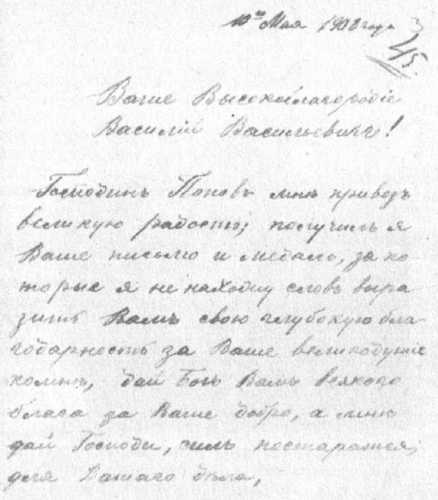 10го Мая 1908 года
45.
Ваше Высокоблагородіе
Василій Васильевичъ!
Господинъ Поповъ мнѣ привезъ
великую радость; получилъ я
Ваше письмо и медаль, за ко
торые я не нахожу словъ выра
зить Вамъ свою глубокую бла
годарность за Ваше великодушіе
комнѣ, дай Богъ Вамъ всякого
блага за Ваше добро, а мнѣ
дай Господи, силъ постаратся
для Вашего дѣла,